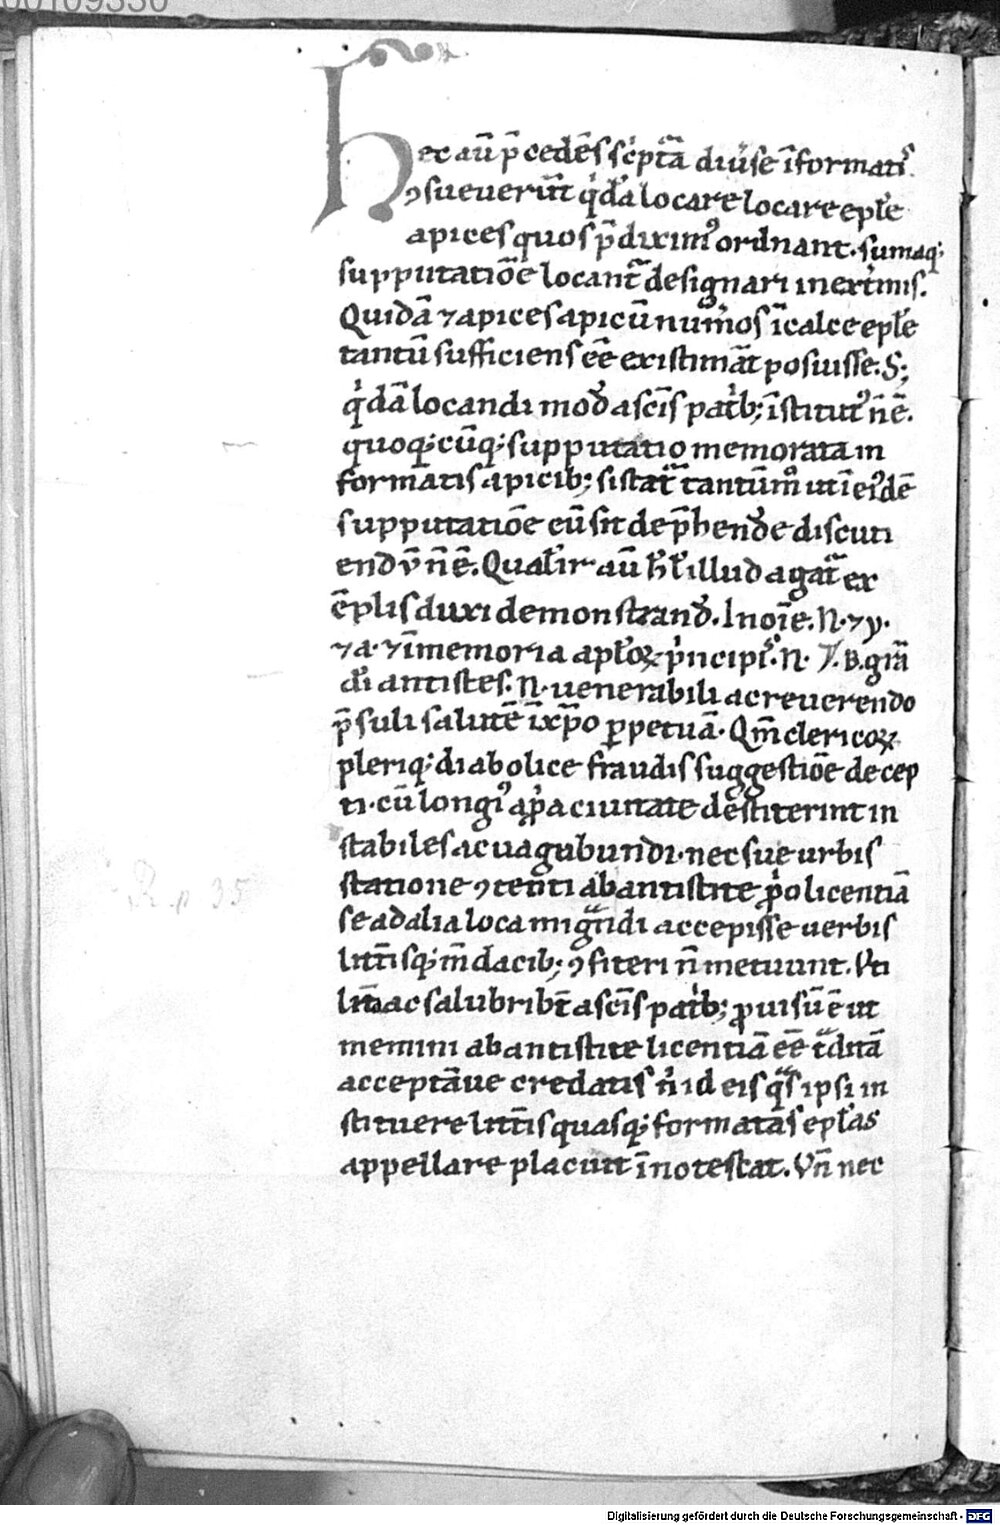 00109330
Hec aū p̄cedēs sc̄ptā diūse īformatis.
ꝯsueverūt qi̇dā locare locare eple
apices quos p̄diximꝰ ordnant. sumaqꝫ
supputatiōe locant̄ designari in extimis.
Quidā ⁊ apices apicū num̄os ī calce eple
tantū sufficiens eē existimāt posuisse. S;
qi̇dā locandi mod a scīs patrib; īstitutꝰ n̄ ē.
quoq; cūq; supputatio memorata in
formatis apicib; sistat̄ tantūm̊ ut ī eiꝰdē
supputatiōe eū sit dep̄hendere discuti
endū n̄ ē. Qualit̄ aū illud agat̄ ex
ēplis duxi demonstrand. In noīe. N. ⁊ y.
⁊ a. ⁊ ī memoria aploꝝ pi̇ncipis. N. B. grā
di antistes. N. venerabili ac reverendo
p̄suli salutē ī xp̄o ꝑpetuā. Qm̄ clericoꝝ
pleriq; diabolice fraudis suggestiōe decep
ti. cū longiꝰ a ꝓpi̇a civitate destiterint in
stabiles ac vagabundi. nec sue urbis
statione ꝯtenti ab antistite ꝓpi̇o licentiā
se ad alia loca migndi accepisse verbis
litt̄isq; m̄dacib; ꝯfiteri n̄ metuunt. Uti
lit̄ ac salubrit̄ a scīs patrib; ꝓvisū ē ut
memini ab antistite licentiā eē tditā
acceptāve credatis ni̇ id eis qs ipsi in
stituere litt̄is quasq; formatas eplas
appellare placuit īnotescat. Un̄ nec
R p 35
Digitalisierung gefördert durch die Deutsche Forschungsgemeinschaft - DFG